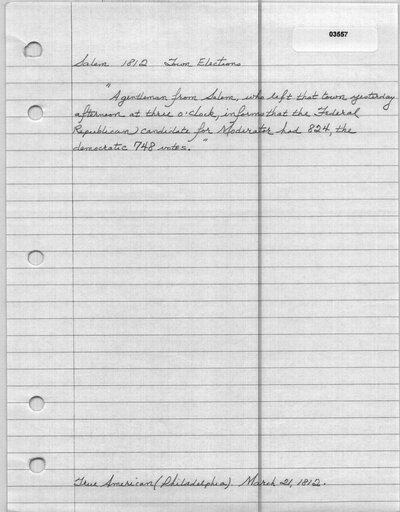 03557
Salem 1812 Town Elections
"A gentleman from Salem, who left that town yesterday
afternoon at three o'clock, informs that the Federal
Republican) candidate for Moderator had 824, the
democratic 748 votes."
True American (Philadelphia). March 21, 1812.